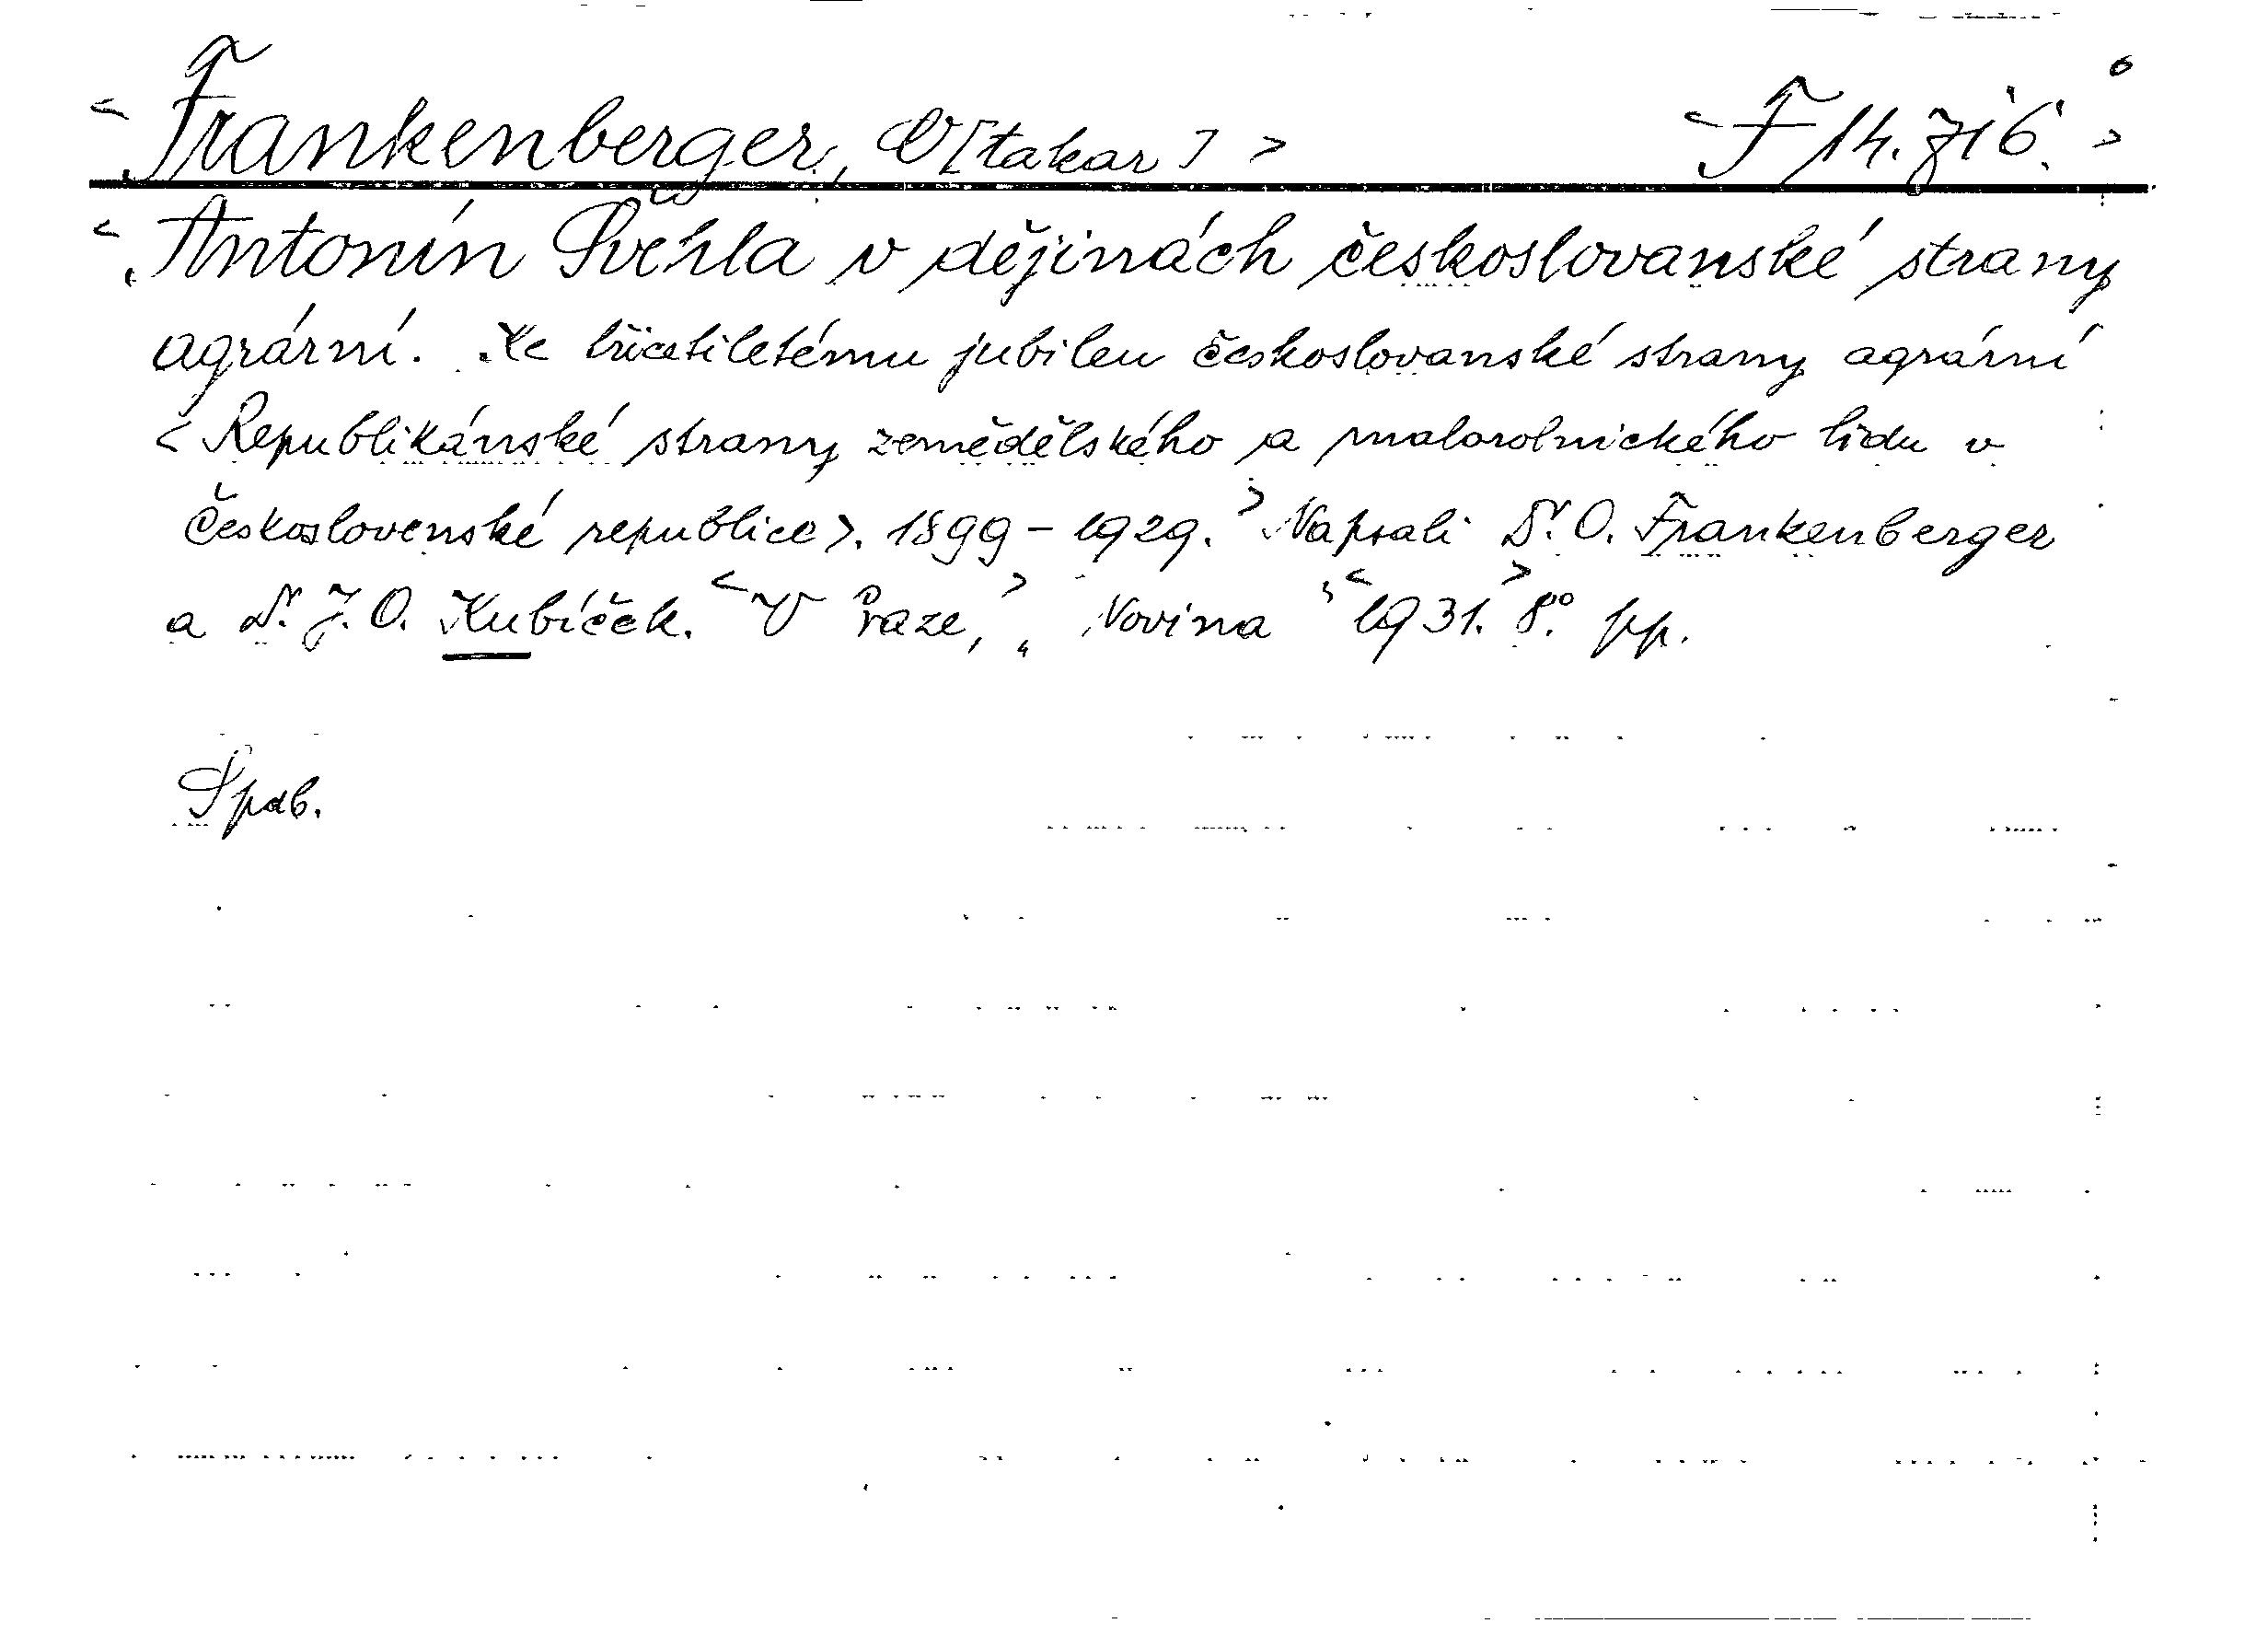 <Frankenberger, O[takar]> <F 14.716.>
<Antonín Švehla v dějinách českoslovanské strany
agrární. Ke třicetiletému jubileu českoslovanské strany agrární
<Republikánské strany zemědělského a malorolnického lidu v
Československé republice>. 1899-1929.> Napsali Dr. O. Frankenberger
a Dr. J. O. Kubíček. <V Praze,> „Novina“ <1931.> 8.° pp.